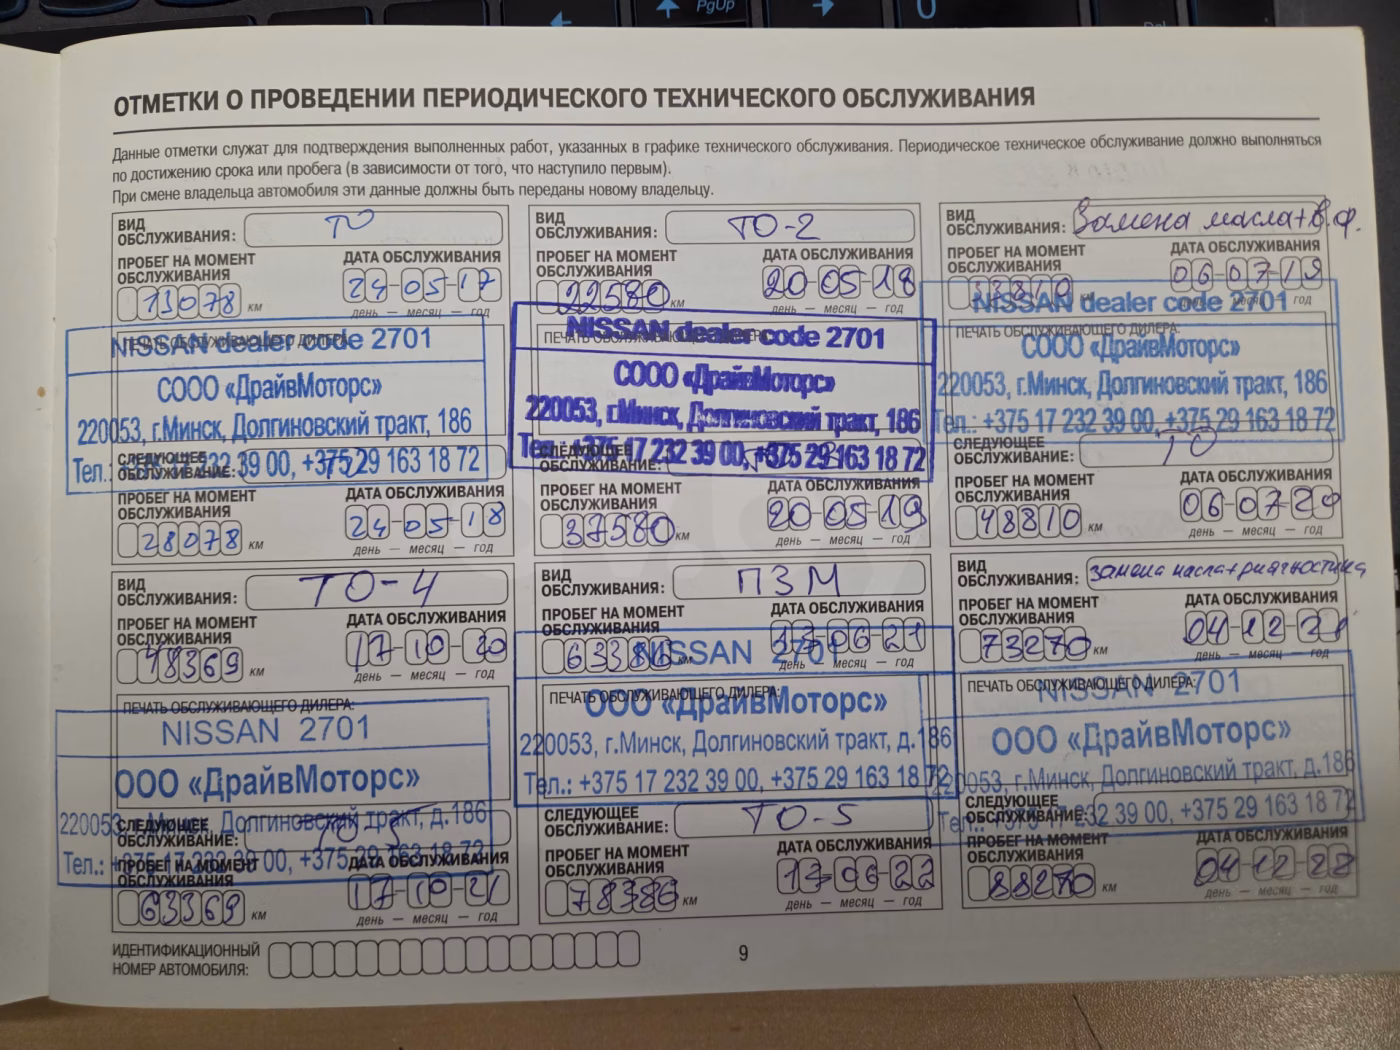 PgUp
Del
ОТМЕТКИ О ПРОВЕДЕНИИ ПЕРИОДИЧЕСКОГО ТЕХНИЧЕСКОГО ОБСЛУЖИВАНИЯ
Данные отметки служат для подтверждения выполненных работ, указанных в графике технического обслуживания. Периодическое техническое обслуживание должно выполняться
по достижению срока или пробега (в зависимости от того, что наступило первым).
При смене владельца автомобиля эти данные должны быть переданы новому владельцу.
ВИД
ОБСЛУЖИВАНИЯ: ТО
ПРОБЕГ НА МОМЕНТ
ОБСЛУЖИВАНИЯ
13078 км
ДАТА ОБСЛУЖИВАНИЯ
24-05-17
день — месяц — год
ПЕЧАТЬ ОБСЛУЖИВАЮЩЕГО ДИЛЕРА:
NISSAN dealer code 2701
СООО «ДрайвМоторс»
220053, г.Минск, Долгиновский тракт, 186
Тел.: +375 17 232 39 00, +375 29 163 18 72
СЛЕДУЮЩЕЕ
ОБСЛУЖИВАНИЕ:
ПРОБЕГ НА МОМЕНТ
ОБСЛУЖИВАНИЯ
28078 км
ДАТА ОБСЛУЖИВАНИЯ
24-05-18
день — месяц — год
ВИД
ОБСЛУЖИВАНИЯ: ТО-2
ПРОБЕГ НА МОМЕНТ
ОБСЛУЖИВАНИЯ
22580 км
ДАТА ОБСЛУЖИВАНИЯ
20-05-18
день — месяц — год
ПЕЧАТЬ ОБСЛУЖИВАЮЩЕГО ДИЛЕРА:
NISSAN dealer code 2701
СООО «ДрайвМоторс»
220053, г.Минск, Долгиновский тракт, 186
Тел.: +375 17 232 39 00, +375 29 163 18 72
СЛЕДУЮЩЕЕ
ОБСЛУЖИВАНИЕ:
ПРОБЕГ НА МОМЕНТ
ОБСЛУЖИВАНИЯ
37580 км
ДАТА ОБСЛУЖИВАНИЯ
20-05-19
день — месяц — год
ВИД
ОБСЛУЖИВАНИЯ: Замена масла+в.ф.
ПРОБЕГ НА МОМЕНТ
ОБСЛУЖИВАНИЯ
33810
ДАТА ОБСЛУЖИВАНИЯ
06-07-19
день — месяц — год
ПЕЧАТЬ ОБСЛУЖИВАЮЩЕГО ДИЛЕРА:
NISSAN dealer code 2701
СООО «ДрайвМоторс»
220053, г.Минск, Долгиновский тракт, 186
Тел.: +375 17 232 39 00, +375 29 163 18 72
СЛЕДУЮЩЕЕ
ОБСЛУЖИВАНИЕ: ТО
ПРОБЕГ НА МОМЕНТ
ОБСЛУЖИВАНИЯ
48810 км
ДАТА ОБСЛУЖИВАНИЯ
06-07-20
день — месяц — год
ВИД
ОБСЛУЖИВАНИЯ: ТО-4
ПРОБЕГ НА МОМЕНТ
ОБСЛУЖИВАНИЯ
48369 км
ДАТА ОБСЛУЖИВАНИЯ
17-10-20
день — месяц — год
ПЕЧАТЬ ОБСЛУЖИВАЮЩЕГО ДИЛЕРА:
NISSAN 2701
ООО «ДрайвМоторс»
220053, г.Минск, Долгиновский тракт, д.186
Тел.: +375 17 232 39 00, +375 29 163 18 72
СЛЕДУЮЩЕЕ
ОБСЛУЖИВАНИЕ: ТО-5
ПРОБЕГ НА МОМЕНТ
ОБСЛУЖИВАНИЯ
63369 км
ДАТА ОБСЛУЖИВАНИЯ
17-10-21
день — месяц — год
ВИД
ОБСЛУЖИВАНИЯ: ПЗМ
ПРОБЕГ НА МОМЕНТ
ОБСЛУЖИВАНИЯ
63386 км
ДАТА ОБСЛУЖИВАНИЯ
13-06-21
день — месяц — год
ПЕЧАТЬ ОБСЛУЖИВАЮЩЕГО ДИЛЕРА:
NISSAN 2701
ООО «ДрайвМоторс»
220053, г.Минск, Долгиновский тракт, д.186
Тел.: +375 17 232 39 00, +375 29 163 18 72
СЛЕДУЮЩЕЕ
ОБСЛУЖИВАНИЕ: ТО-5
ПРОБЕГ НА МОМЕНТ
ОБСЛУЖИВАНИЯ
78386 км
ДАТА ОБСЛУЖИВАНИЯ
13-06-22
день — месяц — год
ВИД
ОБСЛУЖИВАНИЯ: замена масла+диагностика
ПРОБЕГ НА МОМЕНТ
ОБСЛУЖИВАНИЯ
73270 км
ДАТА ОБСЛУЖИВАНИЯ
04-12-21
день — месяц — год
ПЕЧАТЬ ОБСЛУЖИВАЮЩЕГО ДИЛЕРА:
NISSAN 2701
ООО «ДрайвМоторс»
220053, г.Минск, Долгиновский тракт, д.186
Тел.: +375 17 232 39 00, +375 29 163 18 72
СЛЕДУЮЩЕЕ
ОБСЛУЖИВАНИЕ:
ПРОБЕГ НА МОМЕНТ
ОБСЛУЖИВАНИЯ
88270 км
ДАТА ОБСЛУЖИВАНИЯ
04-12-22
день — месяц — год
ИДЕНТИФИКАЦИОННЫЙ
НОМЕР АВТОМОБИЛЯ:
9